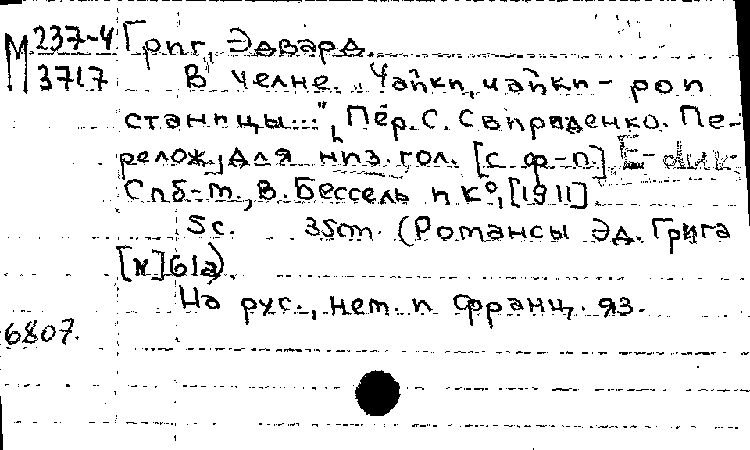 М 237-4 Григ, Эдвард.
3717 В челне. "Чайки, чайки - рои
станицы...", Пер. С. Свириденко. Пе-
релож. для низ. гол. [с ф-п.] E-dur.
Спб-М., В. Бессель и К°, [1911]
5с. 35cm. (Романсы Эд. Грига
[N] 61а).
На рус., нем. и франц. яз.
6807.